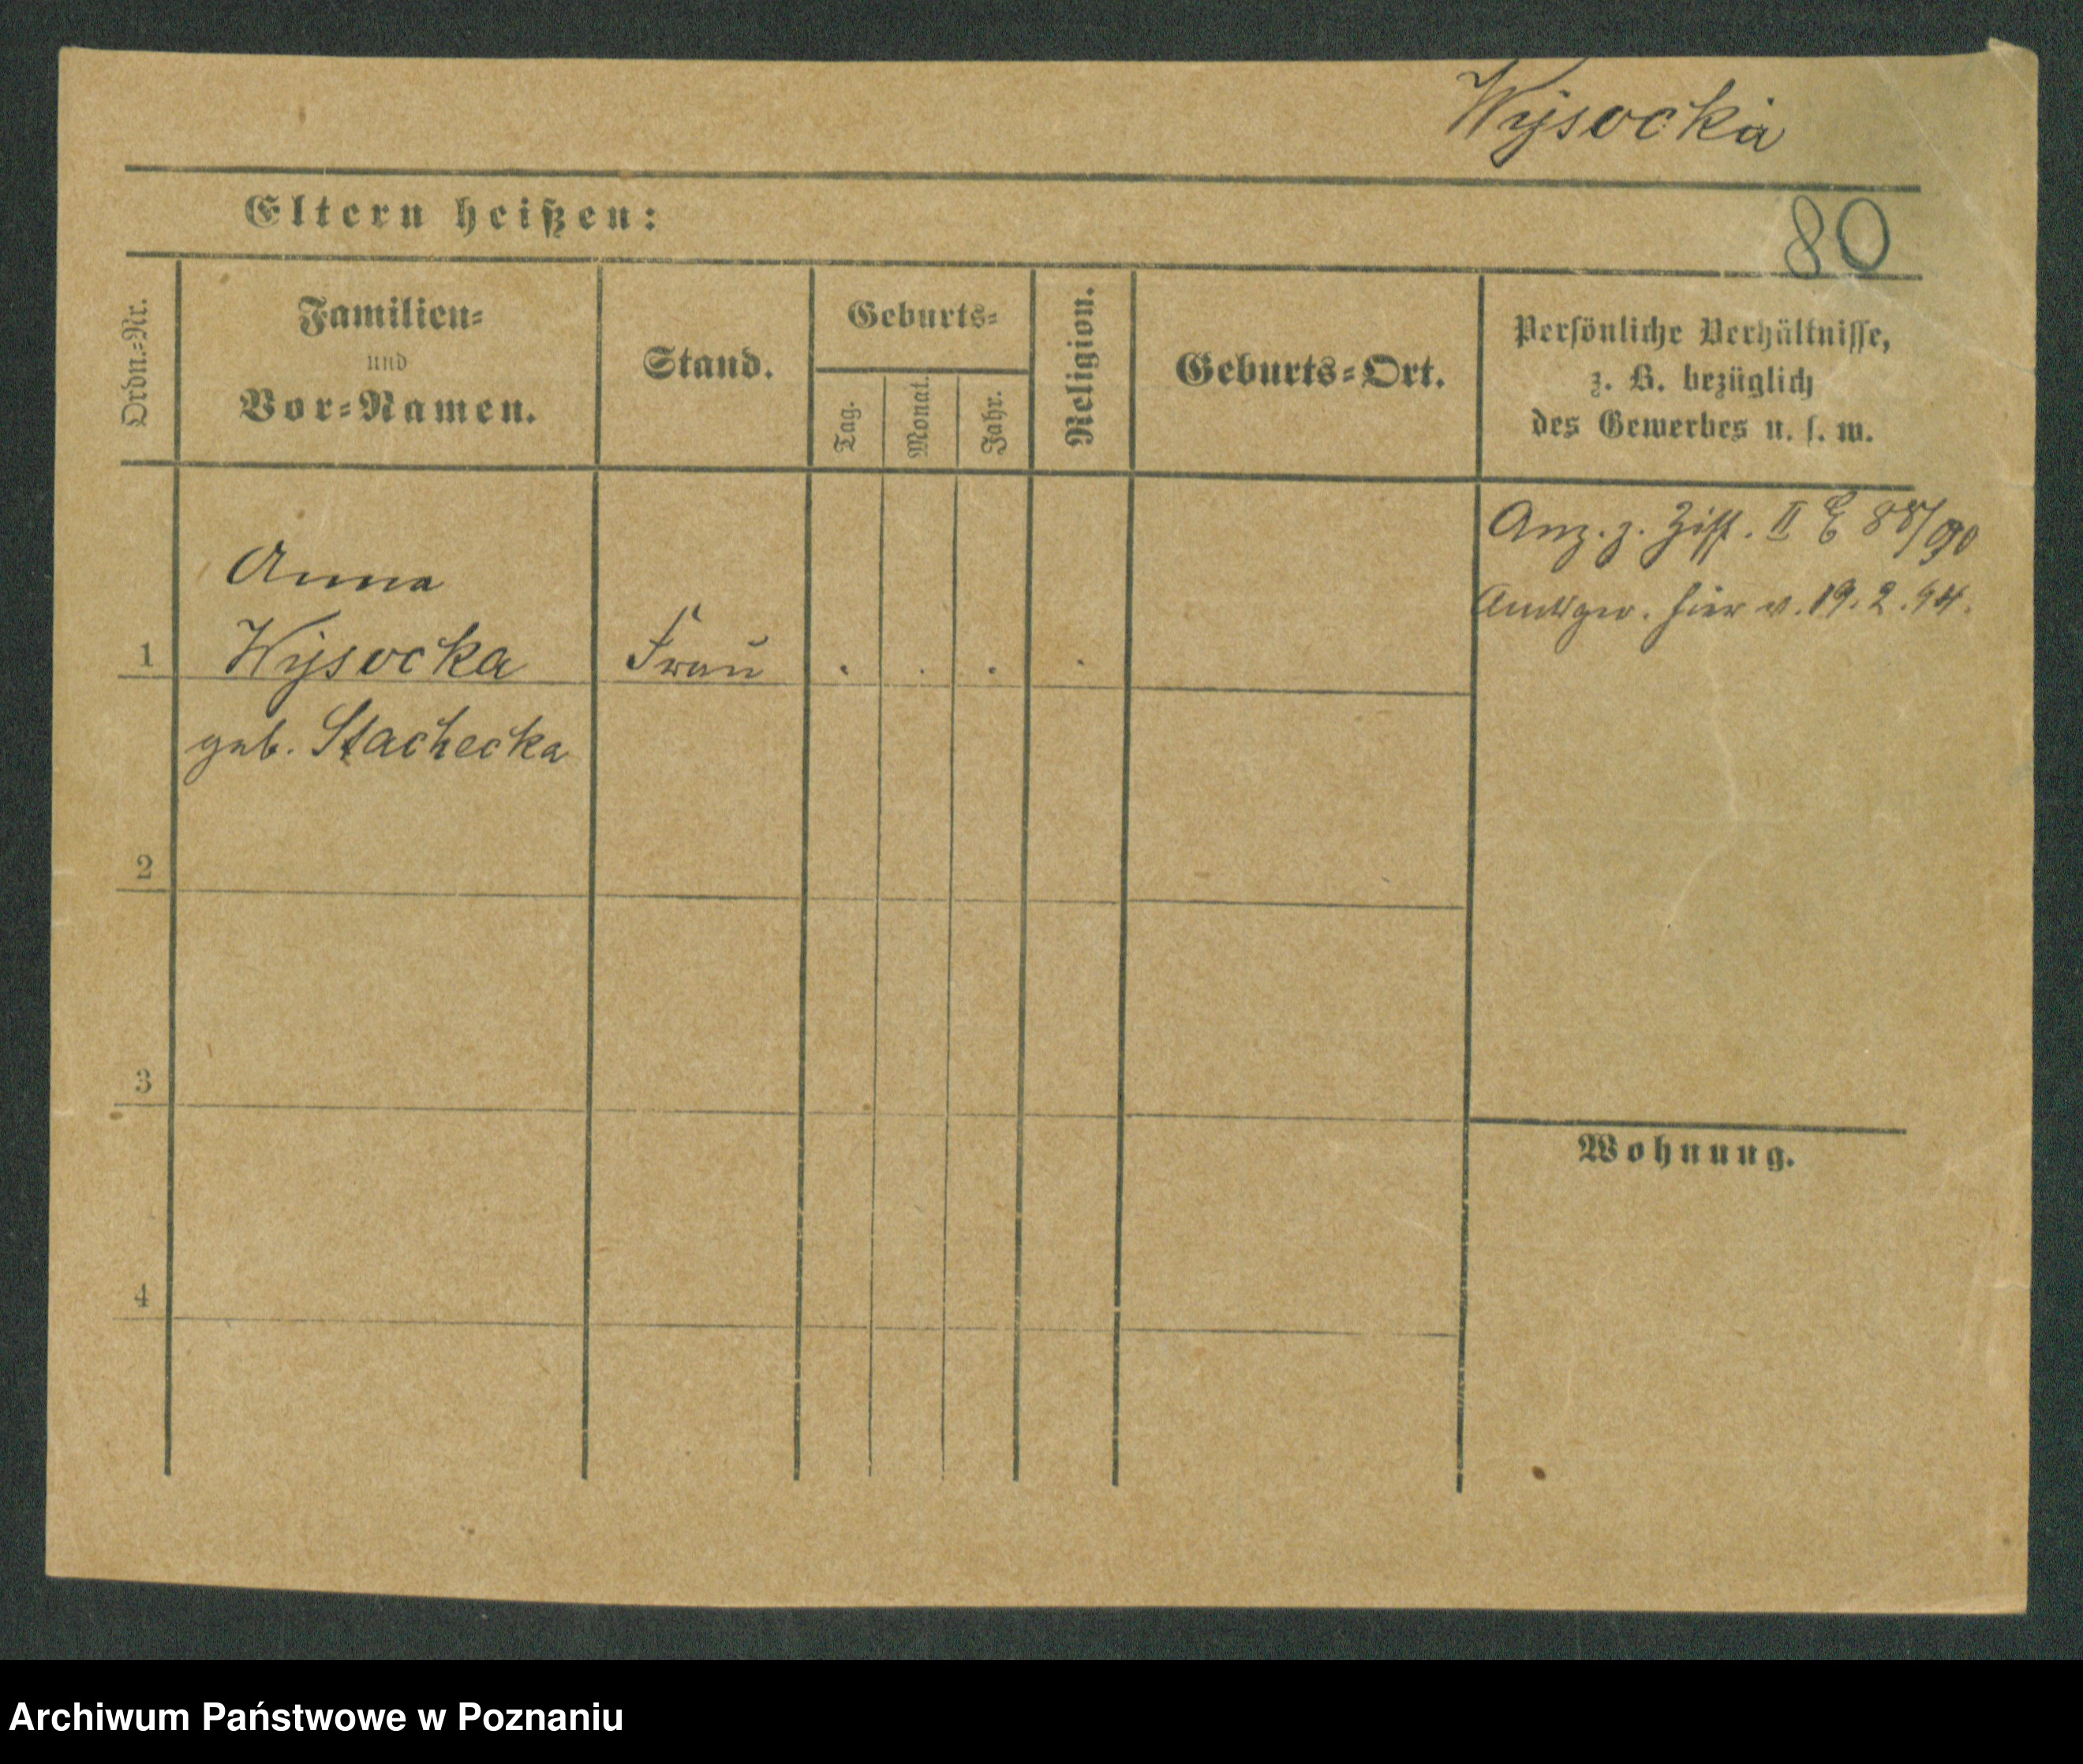 Wysocka
Eltern heißen:
80
Ordn.=Nr.
Familien=
und
Vor=Namen.
Stand.
Geburts=
Tag.
Monat.
Jahr.
Religion.
Geburts=Ort.
Persönliche Verhältnisse,
z. B. bezüglich
des Gewerbes u. s. w.
Anna
1 Wysocka Frau . . . .
geb. Stachecka
Anz. z. Ziff. II E 88/90
hier v. 19.2.94.
2
3
4
Wohnung.
Archiwum Państwowe w Poznaniu